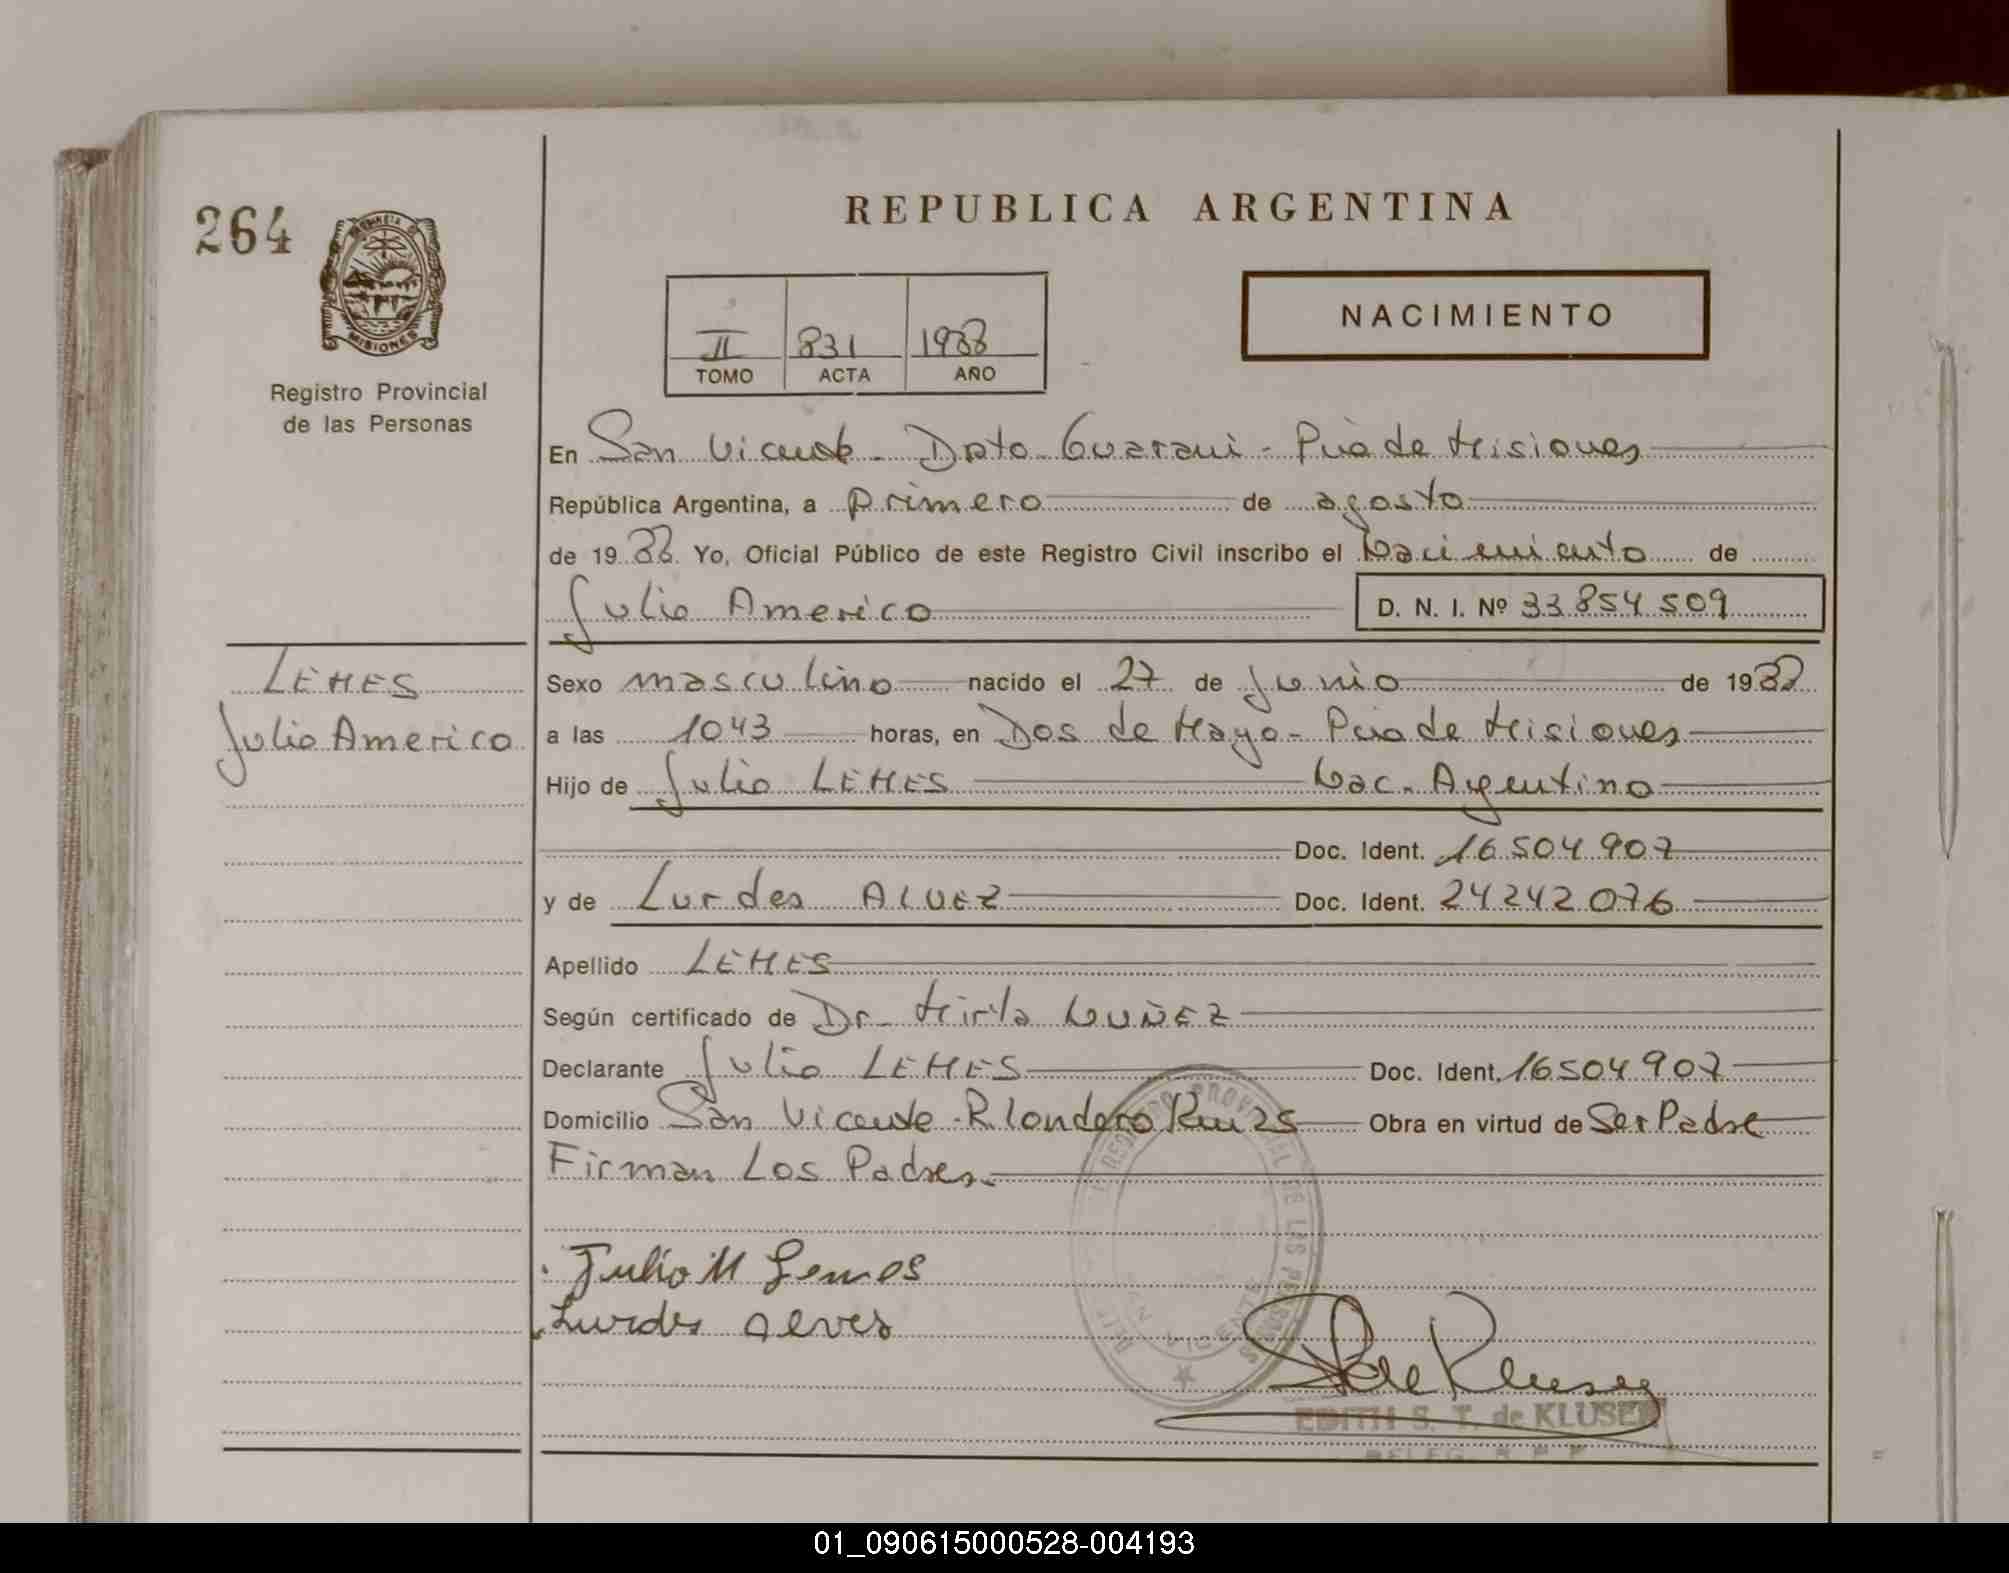 REPUBLICA ARGENTINA
264
MISIONES
Registro Provincial
de las Personas
II 831 1988
TOMO ACTA AÑO
NACIMIENTO
En San Vicente - Dpto Guarani - Pcia de Misiones
República Argentina, a primero de agosto
de 19 88 Yo, Oficial Público de este Registro Civil inscribo el Nacimiento de
Julio Americo D. N. I. Nº 33 854 509
LEMES
Julio Americo
Sexo masculino nacido el 27 de Junio de 19 88
a las 1043 horas, en Dos de Mayo - Pcia de Misiones
Hijo de Julio LEMES Nac. Argentino
Doc. Ident. 16 504 907
y de Lurdes ALVEZ Doc. Ident. 24 242 076
Apellido LEMES
Según certificado de Dr. Mirta NUÑEZ
Declarante Julio LEMES Doc. Ident. 16504 907
Domicilio San Vicente - R Londero Km 25 Obra en virtud de Ser Padre
Firman Los Padres.
Julio M Lemes
Lurdes alves
REGISTRO PROVINCIAL DE LAS PERSONAS
SAN VICENTE
EDITH S. T. de KLUSER
DELEG. R P P
01_090615000528-004193